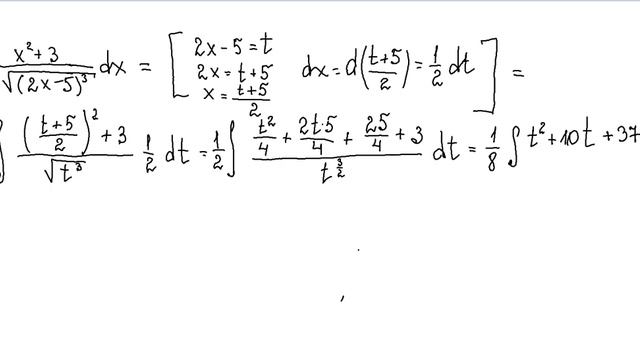 x²+3/√(2x-5)³ dx = [2x-5=t 2x=t+5 x=t+5/2 dx=d(t+5/2)=1/2 dt] =
∫ (t+5/2)²+3/√t³ 1/2 dt = 1/2 ∫ t²/4 + 2t·5/4 + 25/4 + 3/t^3/2 dt = 1/8 ∫ t²+10t+37